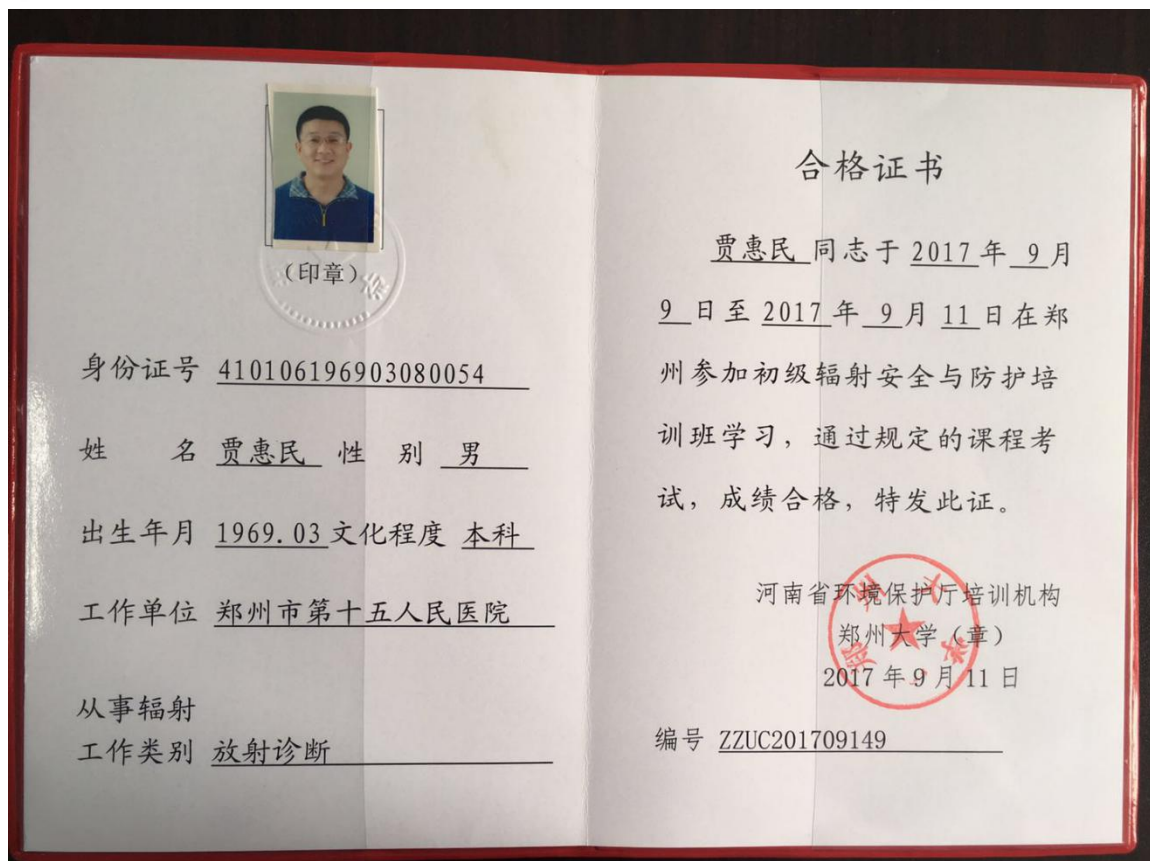 (印章)
身份证号 410106196903080054
姓 名 贾惠民 性 别 男
出生年月 1969.03 文化程度 本科
工作单位 郑州市第十五人民医院
从事辐射
工作类别 放射诊断
合格证书
贾惠民 同志于 2017 年 9 月
9 日至 2017 年 9 月 11 日在郑
州参加初级辐射安全与防护培
训班学习，通过规定的课程考
试，成绩合格，特发此证。
河南省环境保护厅培训机构
郑州大学（章）
2017 年 9 月 11 日
郑州大学
编号 ZZUC201709149